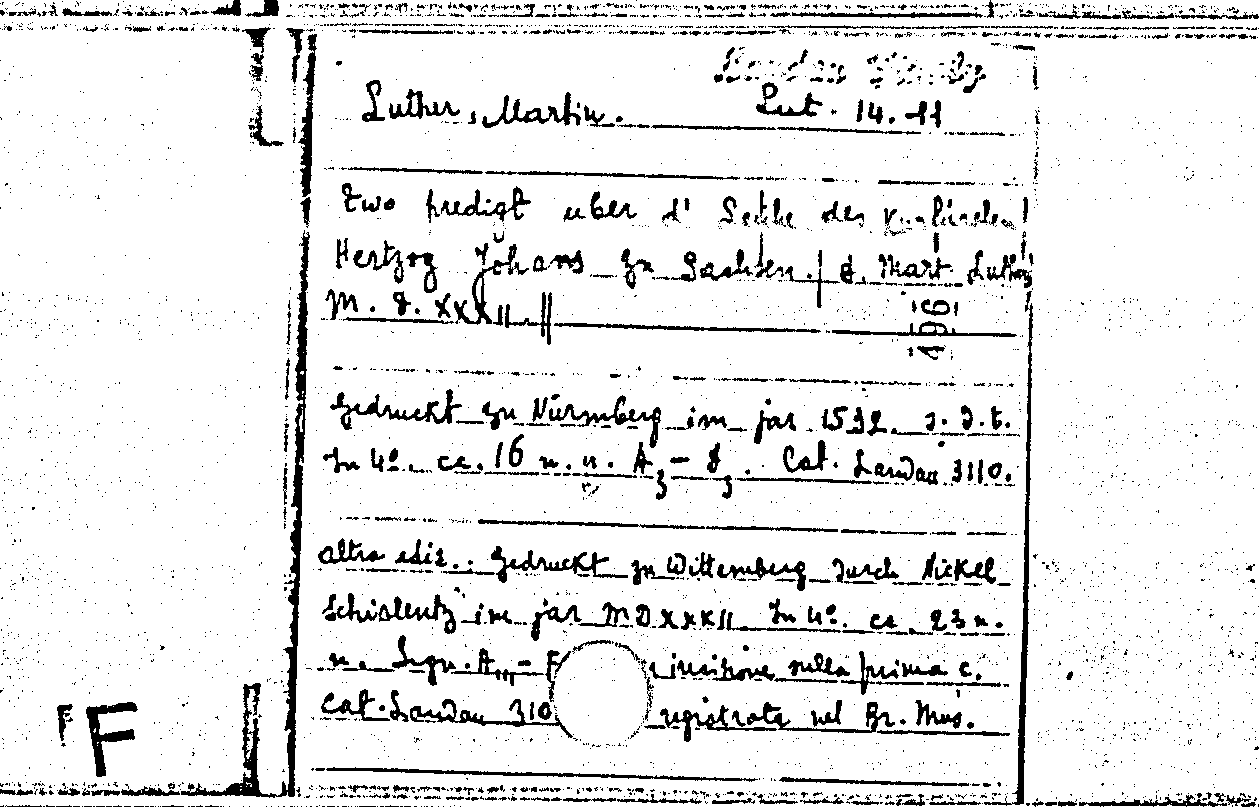 Landau Finaly
Luther, Martin. Lut. 14.-11
Two predigt uber d' Leiche des Kurfürsten |
Hertzog Johans zu Sachsen. | d. Mart Luthers
M. d. XXXII. ||
496
Gedruckt zu Nürmberg im jar 1532. s. d. t.
In 4º. cc. 16 n. n. A3 - d3. Cat. Landau 3110.
altra ediz.: Gedruckt zu Wittemberg durch Nickel
Schirlentz im jar MDXXXII. In 4º. cc. 23 n.
n. Sign. AIII - incisione nella prima c.
Cat. Landau 310 registrata nel Br. Mus.
F F